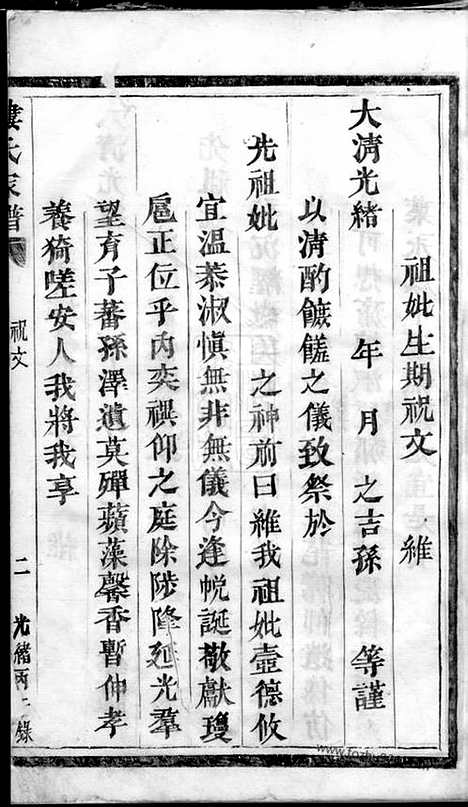 祖妣生期祝文　　維
大清光緒　年　月　之吉孫　等謹
以清酌饌饈之儀致祭於
先祖妣　　之神前曰維我祖妣壼德攸
宜溫恭淑慎無非無儀今逢帨誕敬獻瓊
卮正位乎內奕禩仰之庭除陟降延光羣
望育子蕃孫澤遺莫殫蘋藻馨香暫伸孝
養猗嗟安人我將我享
氏家譜
祝文
二
光緒丙
錄